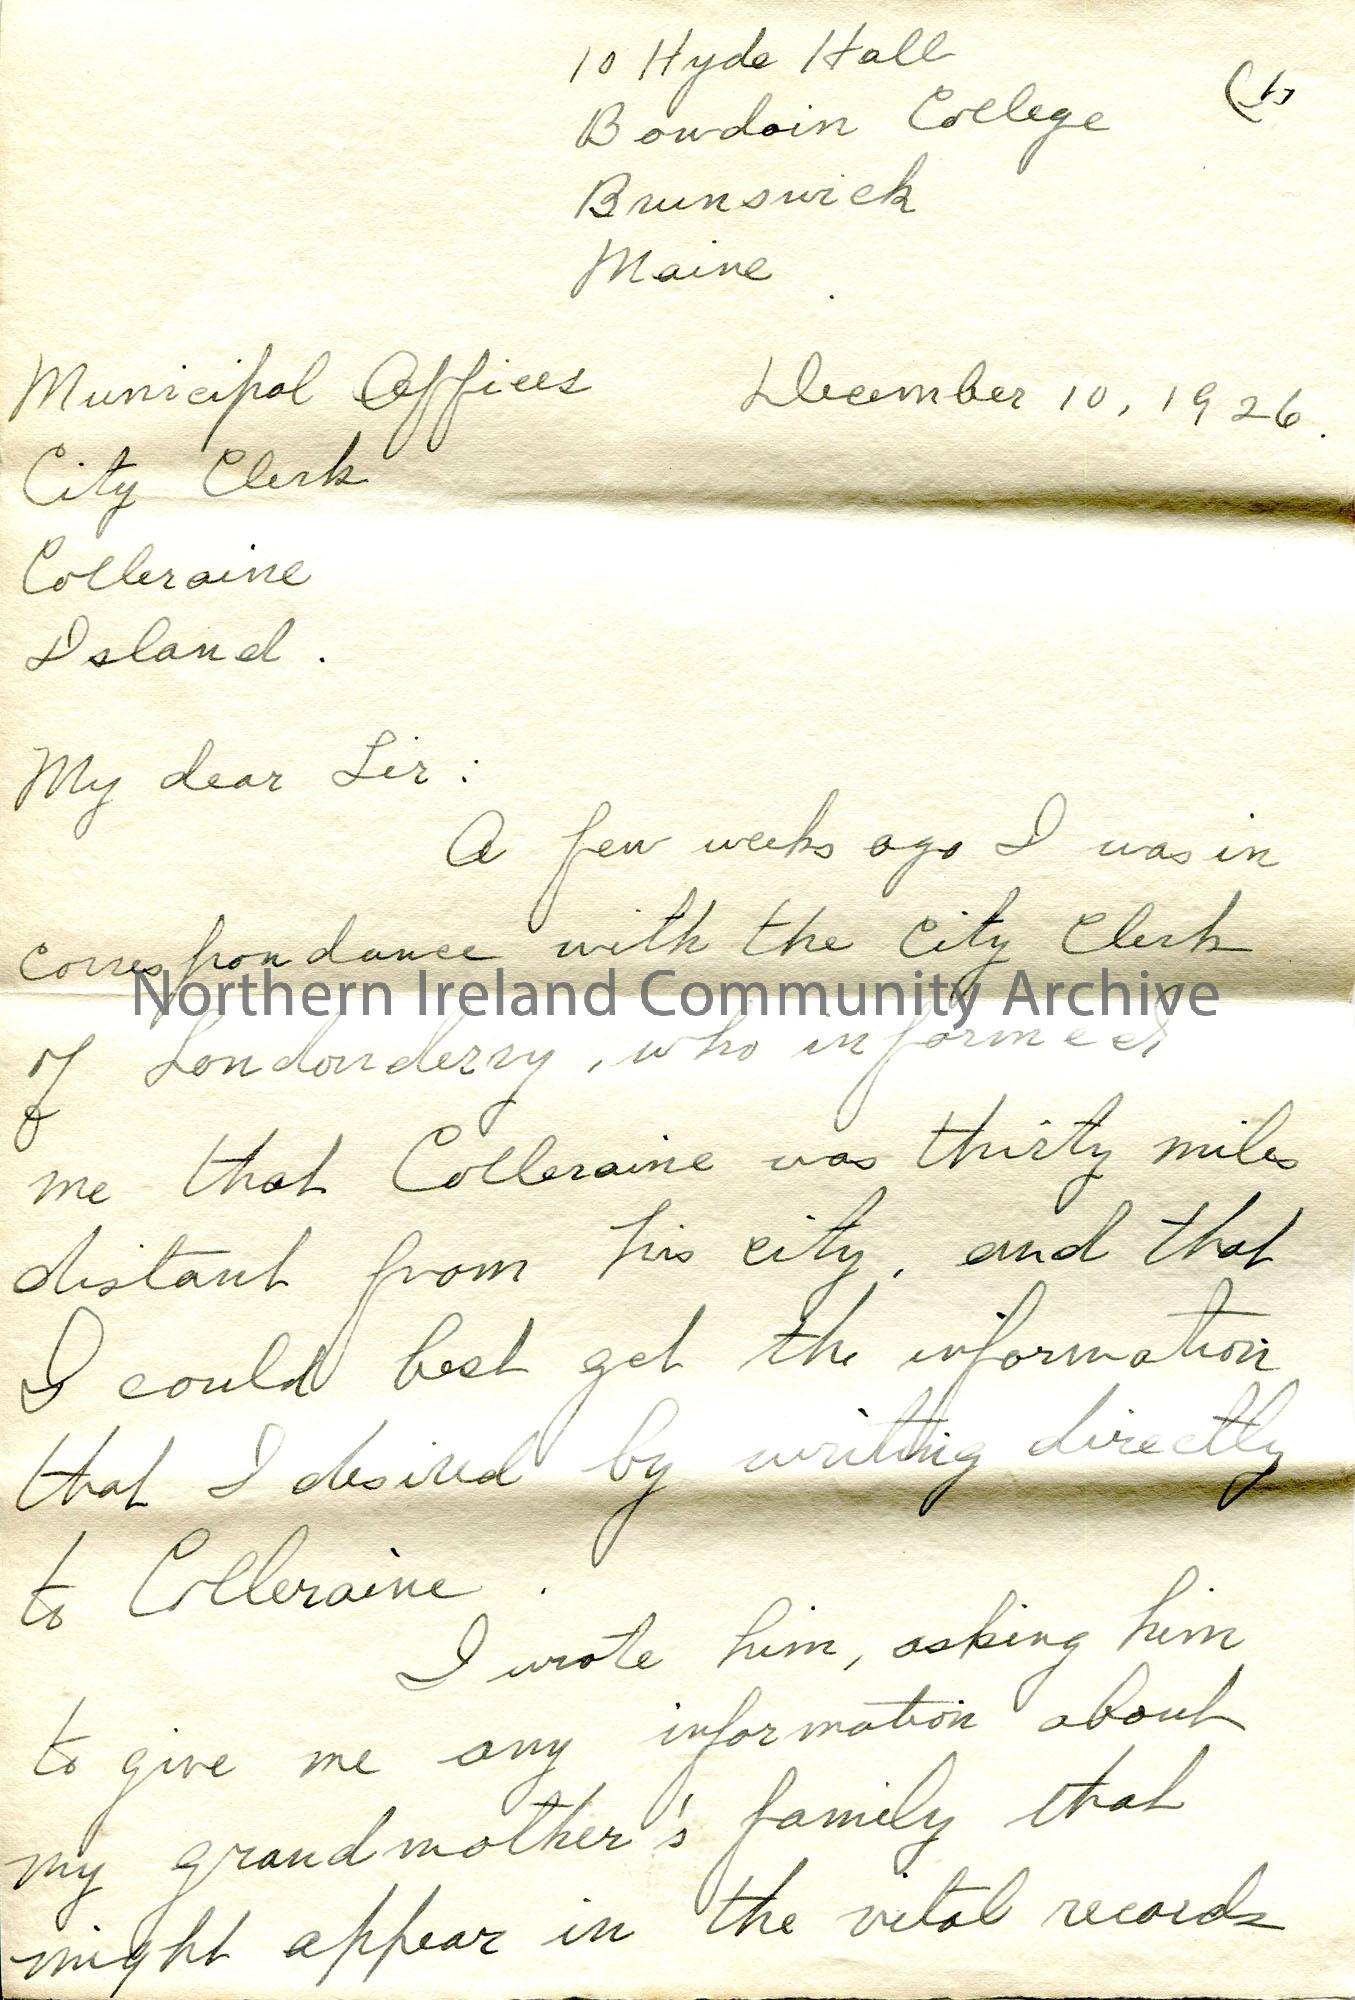 10 Hyde Hall
(1)
Bowdoin College
Brunswick
Maine
Municipal Offices
December 10, 1926.
City Clerk
Colleraine
Island.
My dear Sir:
A few weeks ago I was in
correspondance with the city clerk
Northern Ireland Community Archive
of Londonderry, who informed
me that Colleraine was thirty miles
distant from his city, and that
I could best get the information
that I desired by writing directly
to Colleraine.
I wrote him, asking him
to give me any information about
my grandmother's family that
might appear in the vital records